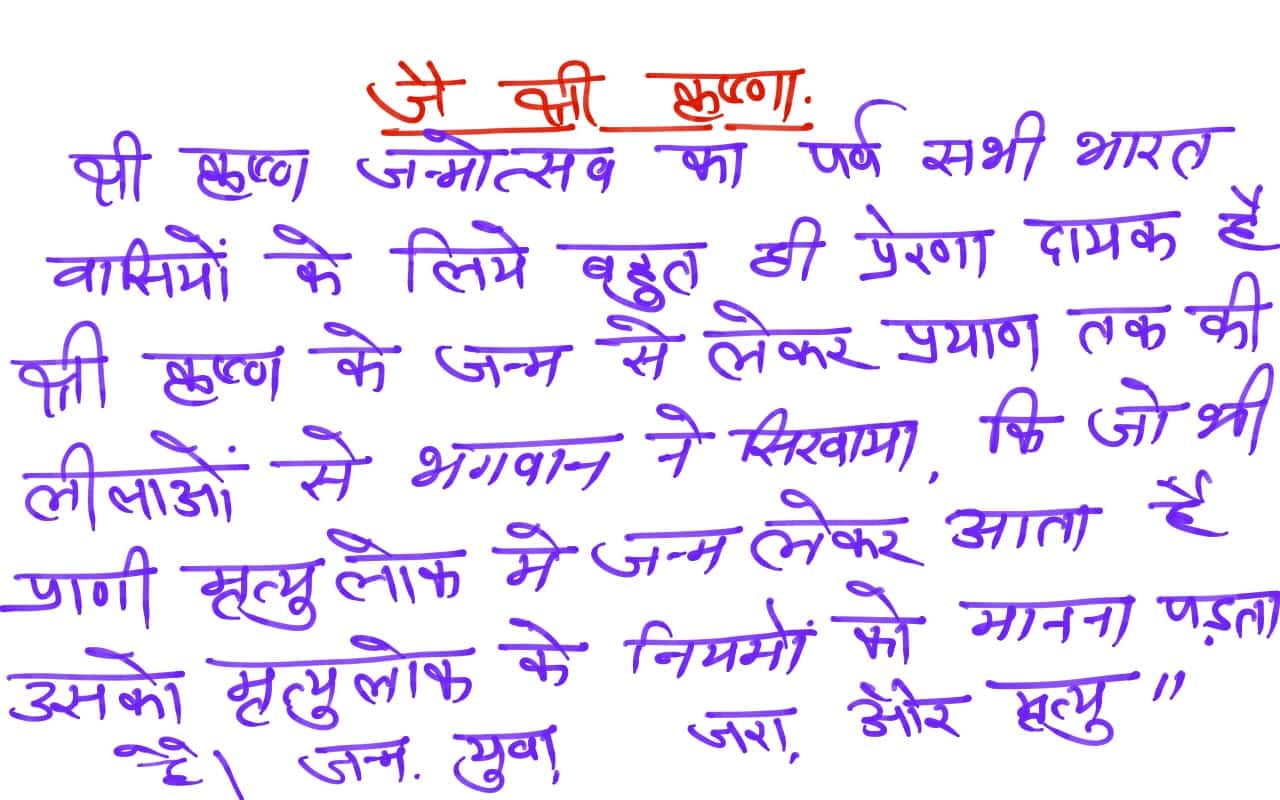 जै श्री कृष्णा.
श्री कृष्ण जन्मोत्सव का पर्व सभी भारत
वासियों के लिये बहुत ही प्रेरणा दायक है
श्री कृष्ण के जन्म से लेकर प्रयाण तक की
लीलाओं से भगवान ने सिखाया, कि जो भी
प्राणी मृत्यु लोक मे जन्म लेकर आता है
उसको मृत्यु लोक के नियमों को मानना पड़ता
है। जन्म. युवा, जरा, और मृत्यु "